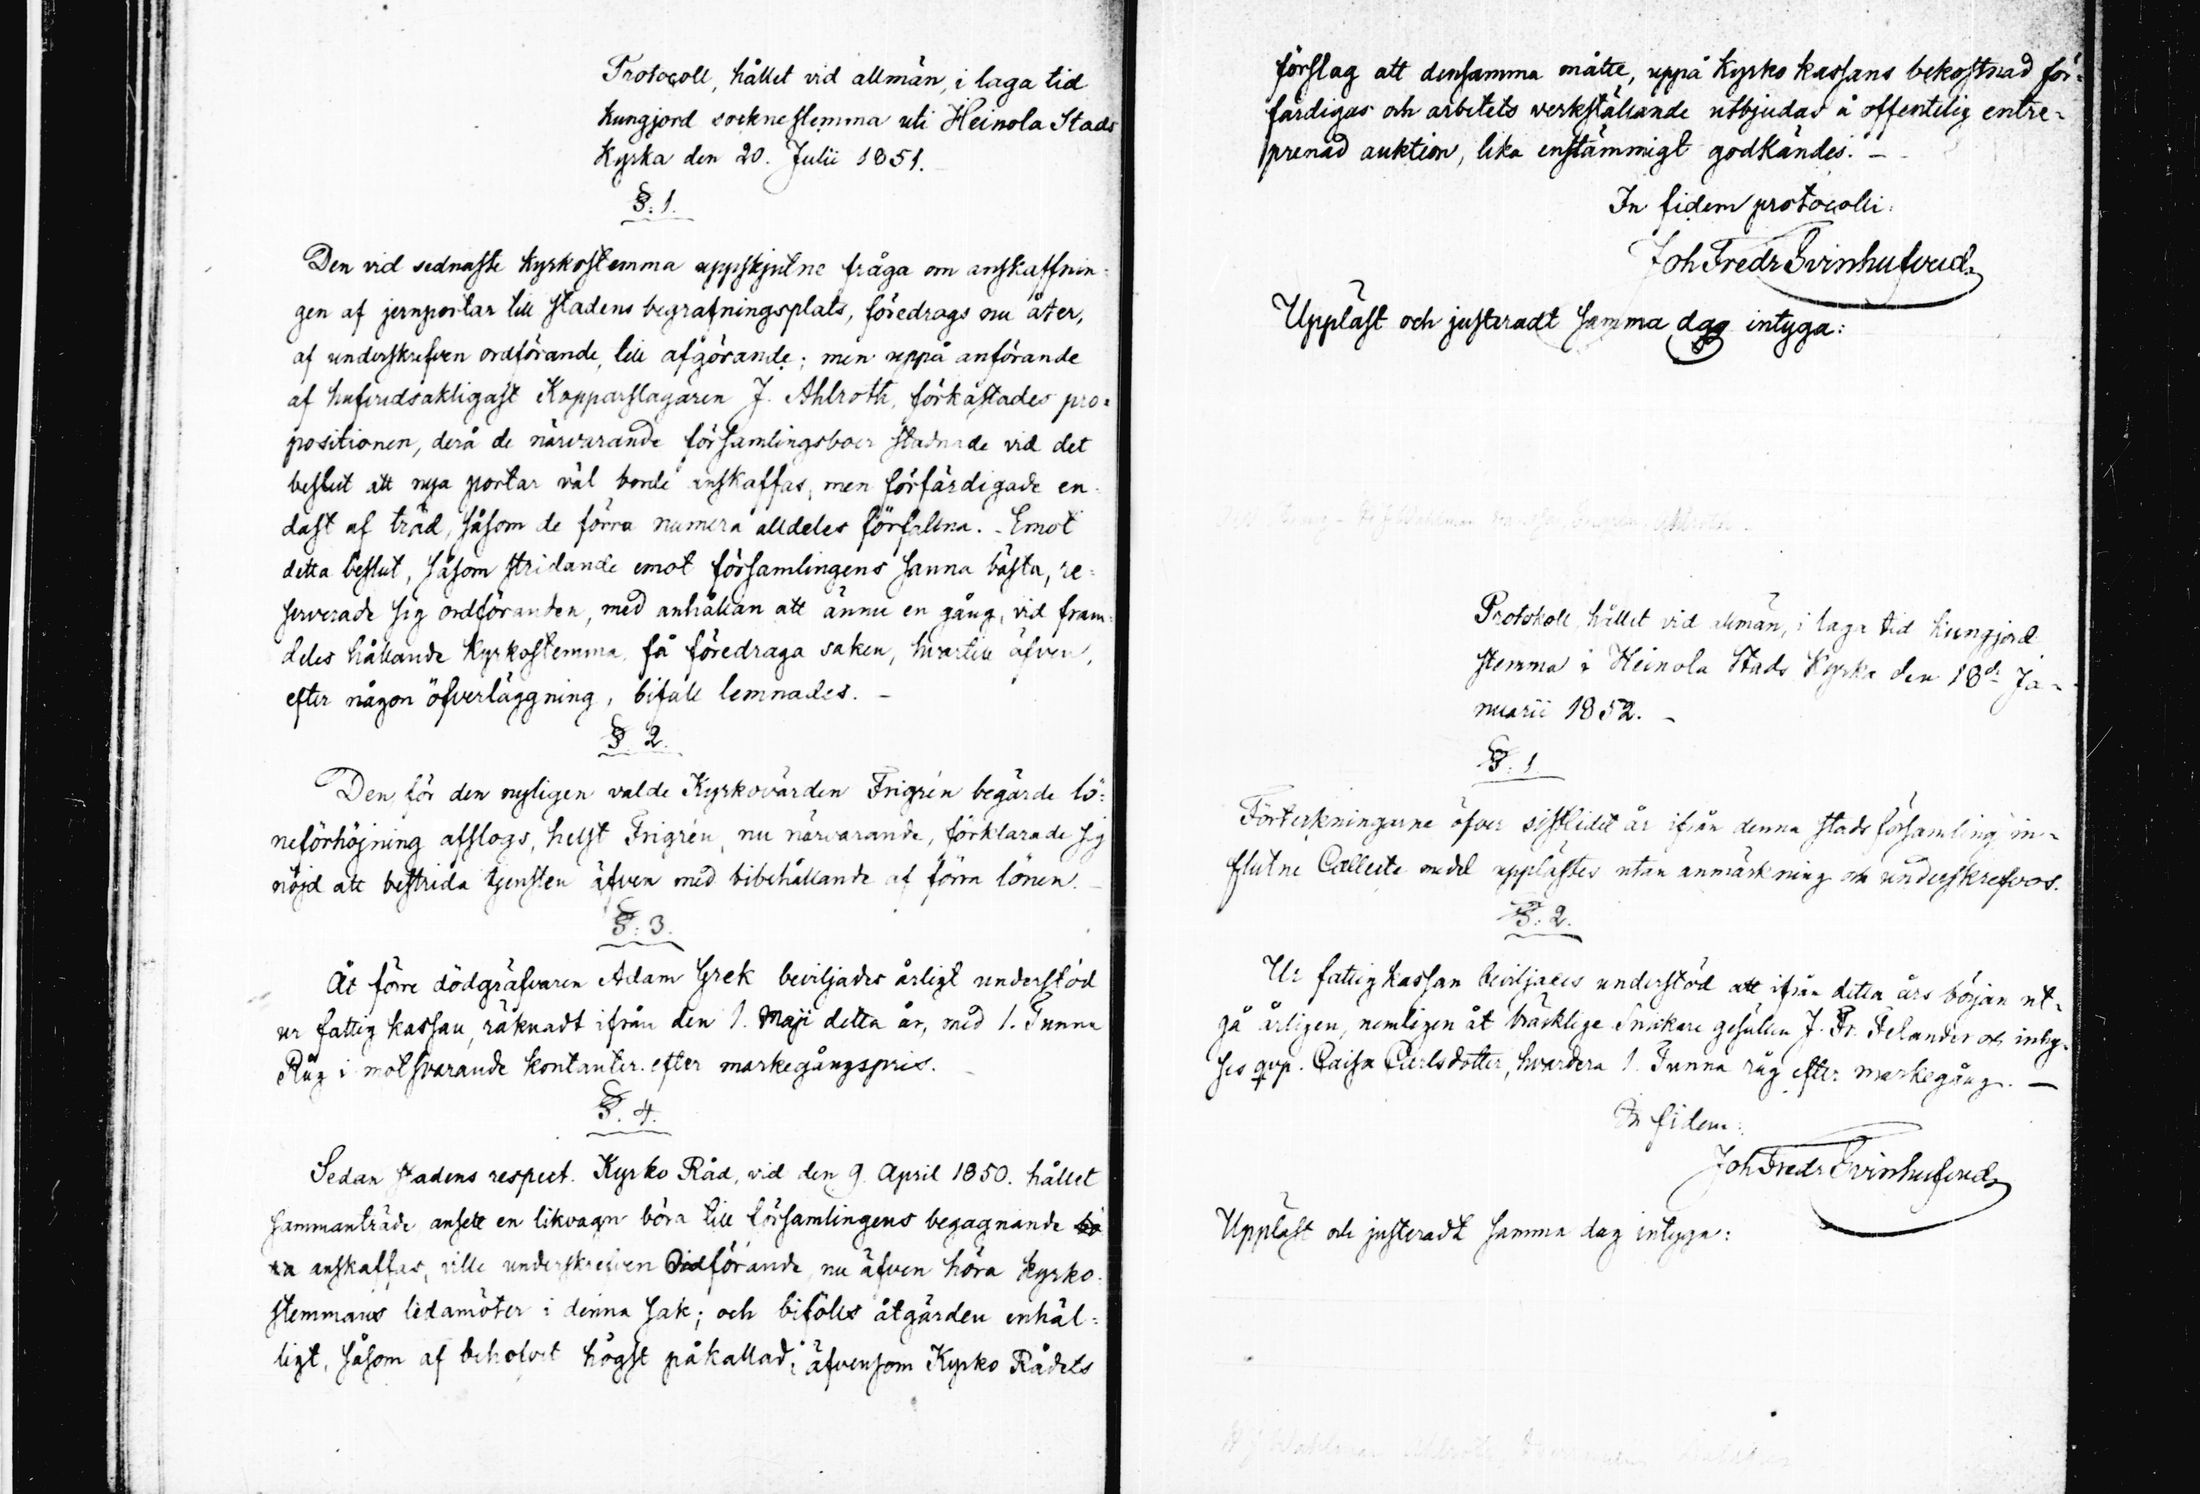 Protocoll, hållet vid allmän, i laga tid
kungjord socknestemma uti Heinola Stads
Kyrka den 20. Julii 1851.
§. 1.
Den vid sednaste kyrkostemma uppskjutne fråga om anskaffnin-
gen af jernportar till stadens begrafningsplats,föredrogs nu åter,
af underskrefven ordförande, till afgörande; men uppå anförande
af hufvudsakligast Kopparslagaren J. Ahlroth, förkastades pro-
positionen, derå de närvarande församlingsboer stadnade vid det
beslut att nya portar väl borde anskaffas, men förfärdigade en-
dast af träd, såsom de förra numera alldeles förfallna. - Emot
detta beslut, såsom stridande emot församlingens sanna bästa, re-
serverade sig ordföranden, med anhållan att ännu en gång, vid fram-
deles hållande Kyrkostemma, få föredraga saken, hvartill äfven,
efter någon öfverläggning, bifall lemnades. -
§ 2.
Den för den nyligen valde Kyrkovärden Frigrén begärde lö-
neförhöjning afslogs, helst Frigrén, nu närvarande, förklarade sig
nöjd att bestrida tjensten äfven med bibehållande af förra lönen. -
§. 3.
Åt förre dödgräfvaren Adam Grek beviljades årligt understöd
ur fattig kassan, räknadt ifrån den 1. Maji detta år, med 1. Tunna
Råg i motsvarande kontanter efter markegångspris. -
§. 4.
Sedan stadens respect. Kyrko Råd, vid den 9. April 1850. hållet
sammanträde ansett en likvagn böra till församlingens begagnande bö
ra anskaffas, ville underskrefven Ordförande nu äfven höra kyrko-
stemmans ledamöter i denna sak; och bifölls åtgärden enhäl-
ligt, såsom af behofvet högst påkallad; äfvensom Kyrko Rådets
förslag att densamma måtte, uppå Kyrko kassans bekostnad för-
färdigas och arbetets verkställande utbjudas å offentelig entre-
prenad auktion, lika enstämmigt godkändes. -
In fidem protocolli:
Joh Fredr Svinhufvud
Uppläst och justeradt samma dag intyga:
Protokoll hållet vid allmän, i laga tid kungjord
stemma i Heinola Stads Kyrka den 18d. Ja-
nuarii 1852. -
§. 1.
Förteckningarne öfver sistlidet år ifrån denna stads församling in-
flutne Collecte medel upplästes utan anmärkning och underskrefvos.
§. 2.
Ur fattigkassan beviljades understöd att ifrån detta års början ut-
gå årligen, nemligen åt bräcklige Snickare gesällen J. Fr. Felander och inhy-
ses qvp. Caisa Carlsdotter, hvardera 1. Tunna råg efter markegång. -
In fidem:
Joh Fredr Svinhufvud
Uppläst och justeradt samma dag intyga: